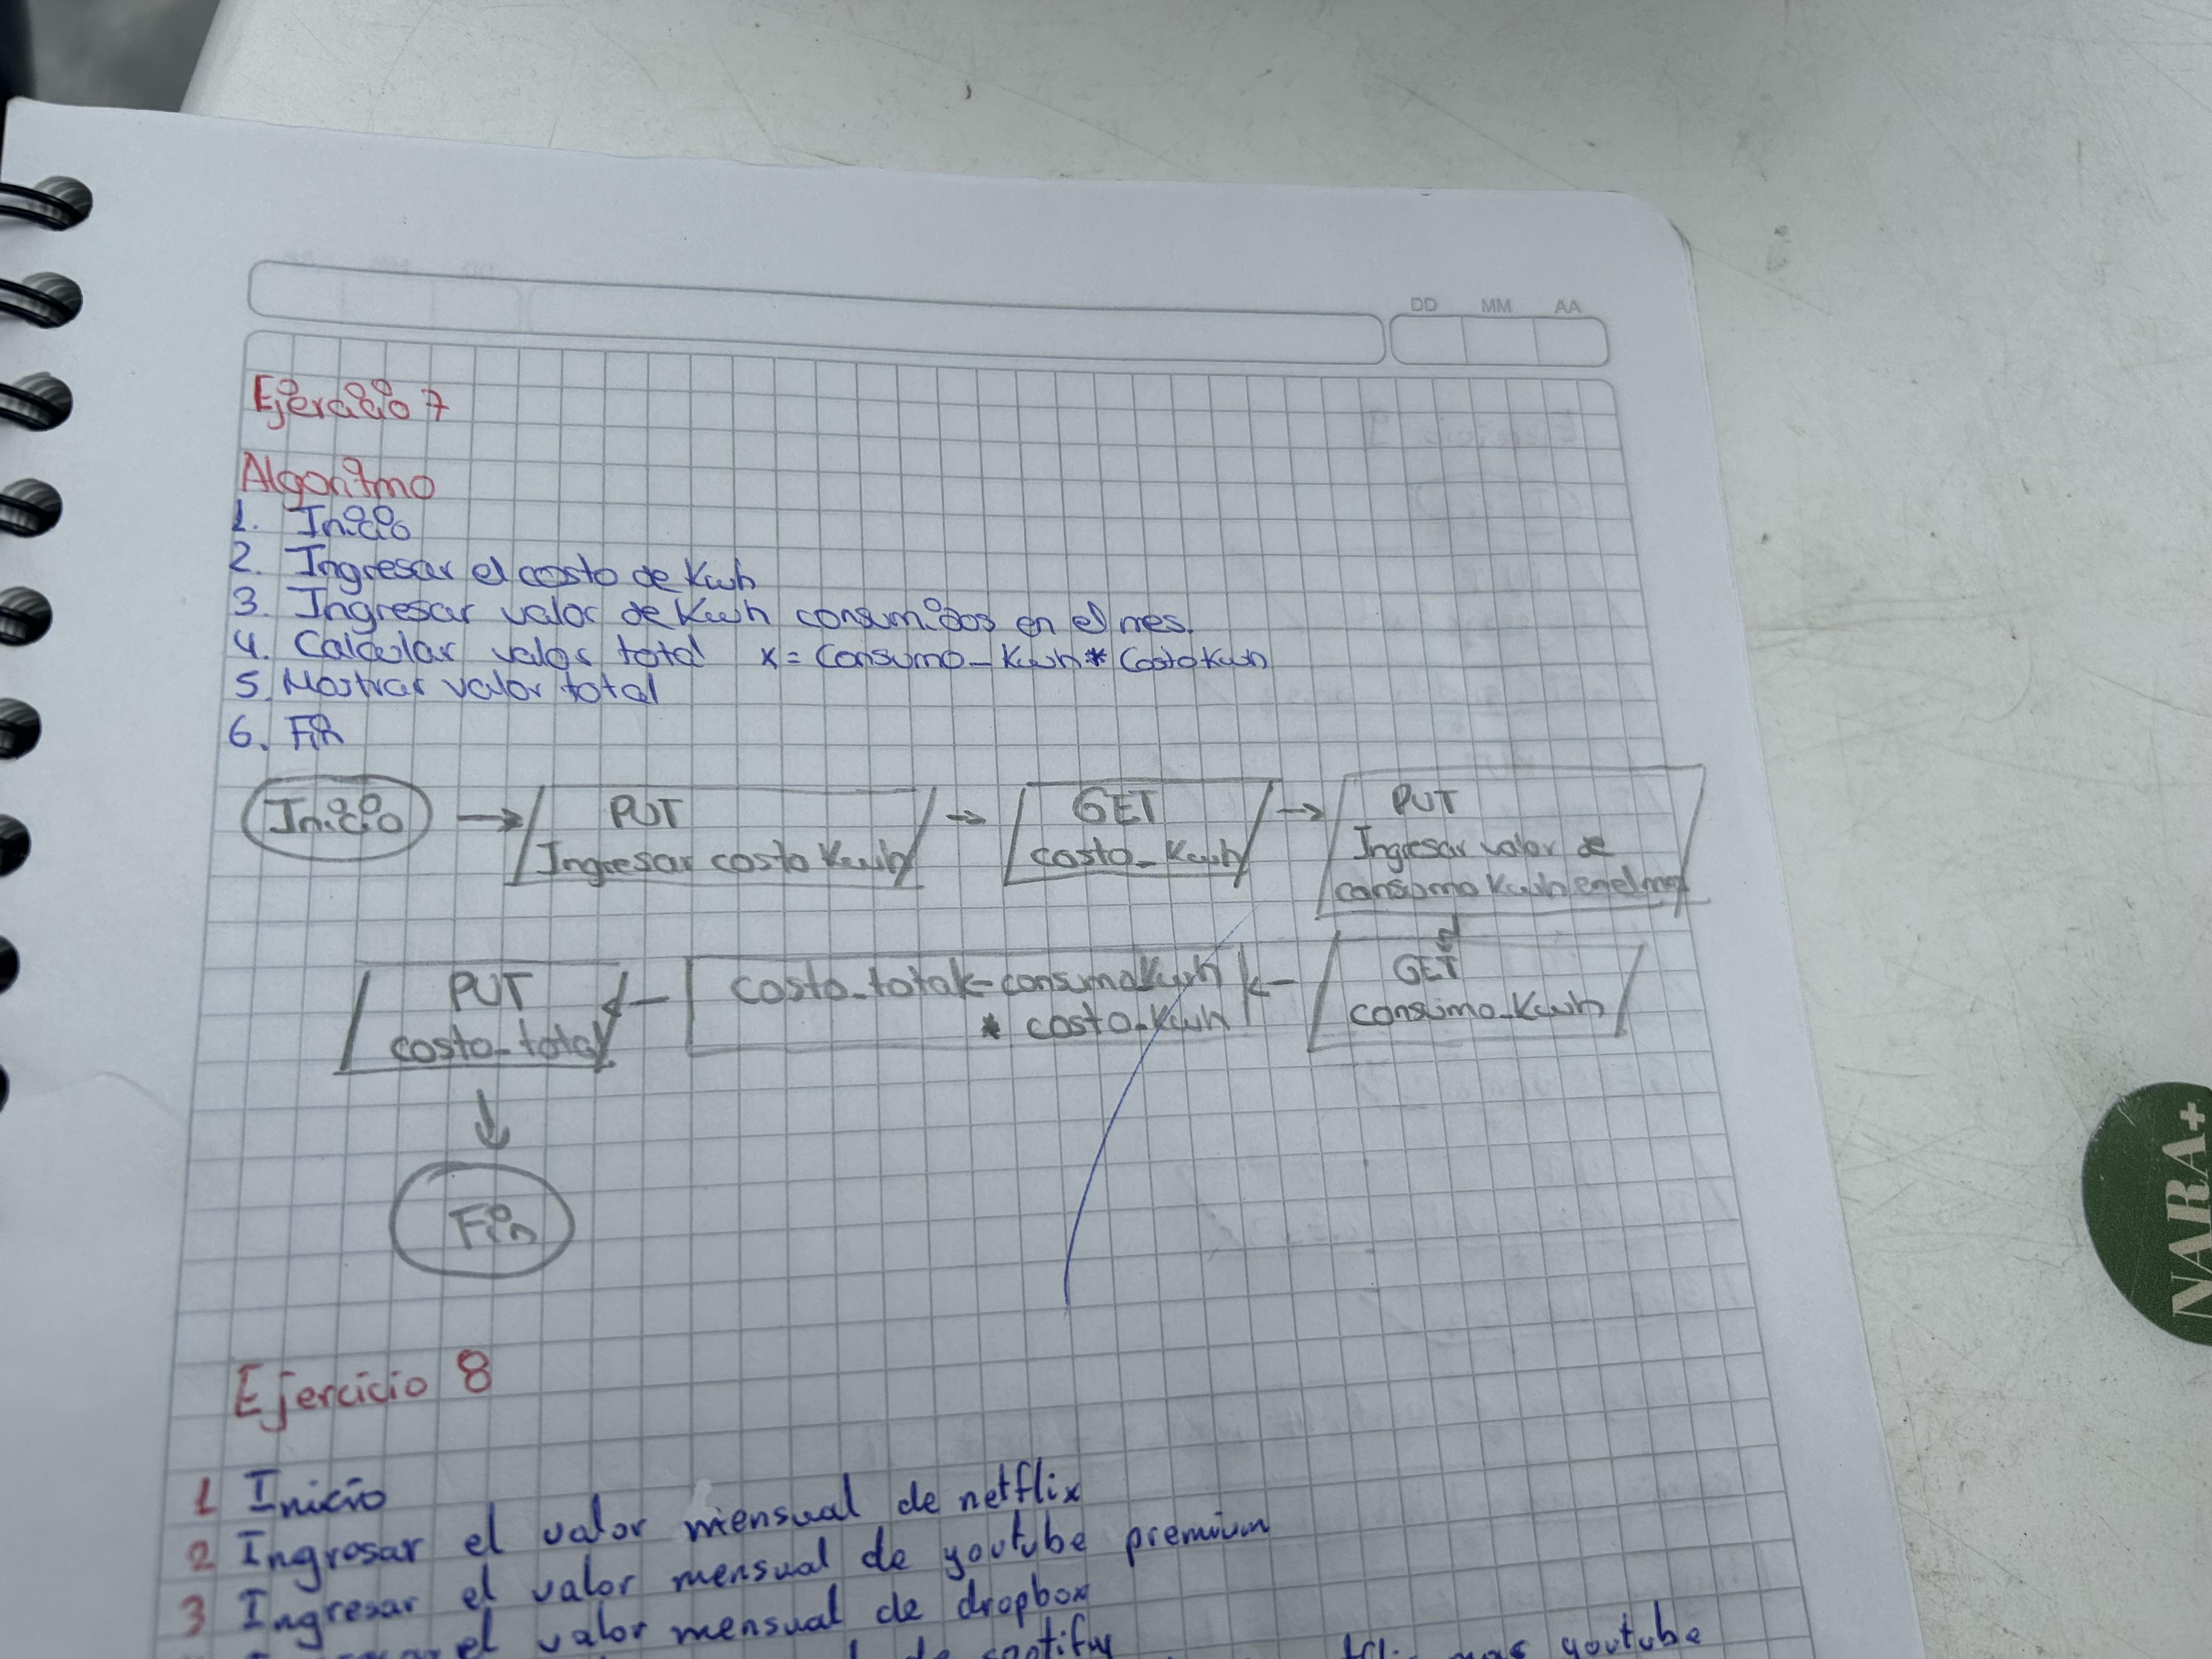 DD MM AA
Ejercicio 7
Algoritmo
1. Inicio
2. Ingresar el costo de Kwh
3. Ingresar valor de Kwh consumidos en el mes.
4. Calcular valor total x = Consumo_Kwh * Costo Kwh
5. Mostrar valor total
6. Fin
Inicio
PUT
Ingresar costo Kwh
GET
costo_Kwh
PUT
Ingresar valor de
consumo Kwh en el mes
GET
consumo_Kwh
costo_total<-consumoKwh
* costo_Kwh
PUT
costo_total
Fin
Ejercicio 8
1 Inicio
2 Ingresar el valor mensual de netflix
3 Ingresar el valor mensual de youtube premium
el valor mensual de dropbox
de spotify
mas youtube
NARA+